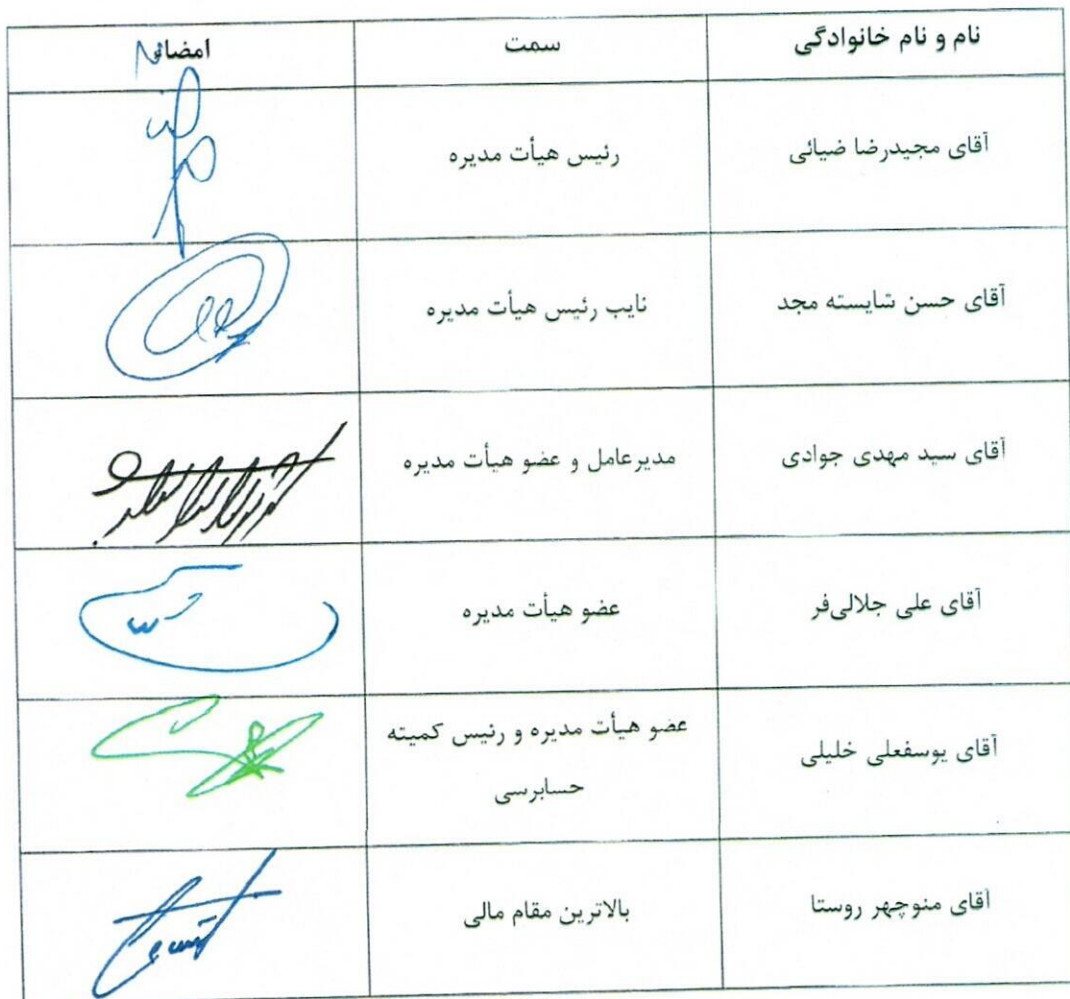 نام و نام خانوادگی سمت امضاء
آقای مجیدرضا ضیائی رئیس هیأت مدیره
آقای حسن شایسته مجد نایب رئیس هیأت مدیره
آقای سید مهدی جوادی مدیرعامل و عضو هیأت مدیره
آقای علی جلالی‌فر عضو هیأت مدیره
آقای یوسفعلی خلیلی عضو هیأت مدیره و رئیس کمیته
حسابرسی
آقای منوچهر روستا بالاترین مقام مالی